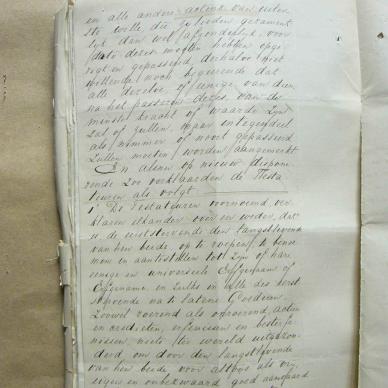 en alle andere actens van uiter
ste wille, die zij lieden gezament
lijk dan wel afzonderlijk, voor
dato dezer mogten hebben opge
regt en gepasseerd, derhalve noch
willende noch begeerende dat
alle dezelve of eenige van dien
na het passeeren dezes van de
minste kracht of waarde zijn
zal of zullen, maar integendeel
als nimmer of nooit gepasseerd
zullen moeten worden aangemerkt
En alzoo op nieuw dispone
rende zoo verklaarden de Testa
teuren als volgt
1° De testateuren voornoemd ver
klaren elkander over en weder, dat
is de eerststervende den langstlevende
van hen beide, op te roepen, te benoe
men en aantestellen tot zijn of hare
eenige en universeele Erfgenaam of
Erfgename, en zulks in alle des eerst
stervende na te latene Goederen
zoowel roerend als onroerend, actien
en credieten, erfenissen en besterfe
nissen, niets ter wereld uitgezon
derd, om door den langstlevende
van hen beide voor altoos als vrij
eigen en onbezwaard goed aanvaard